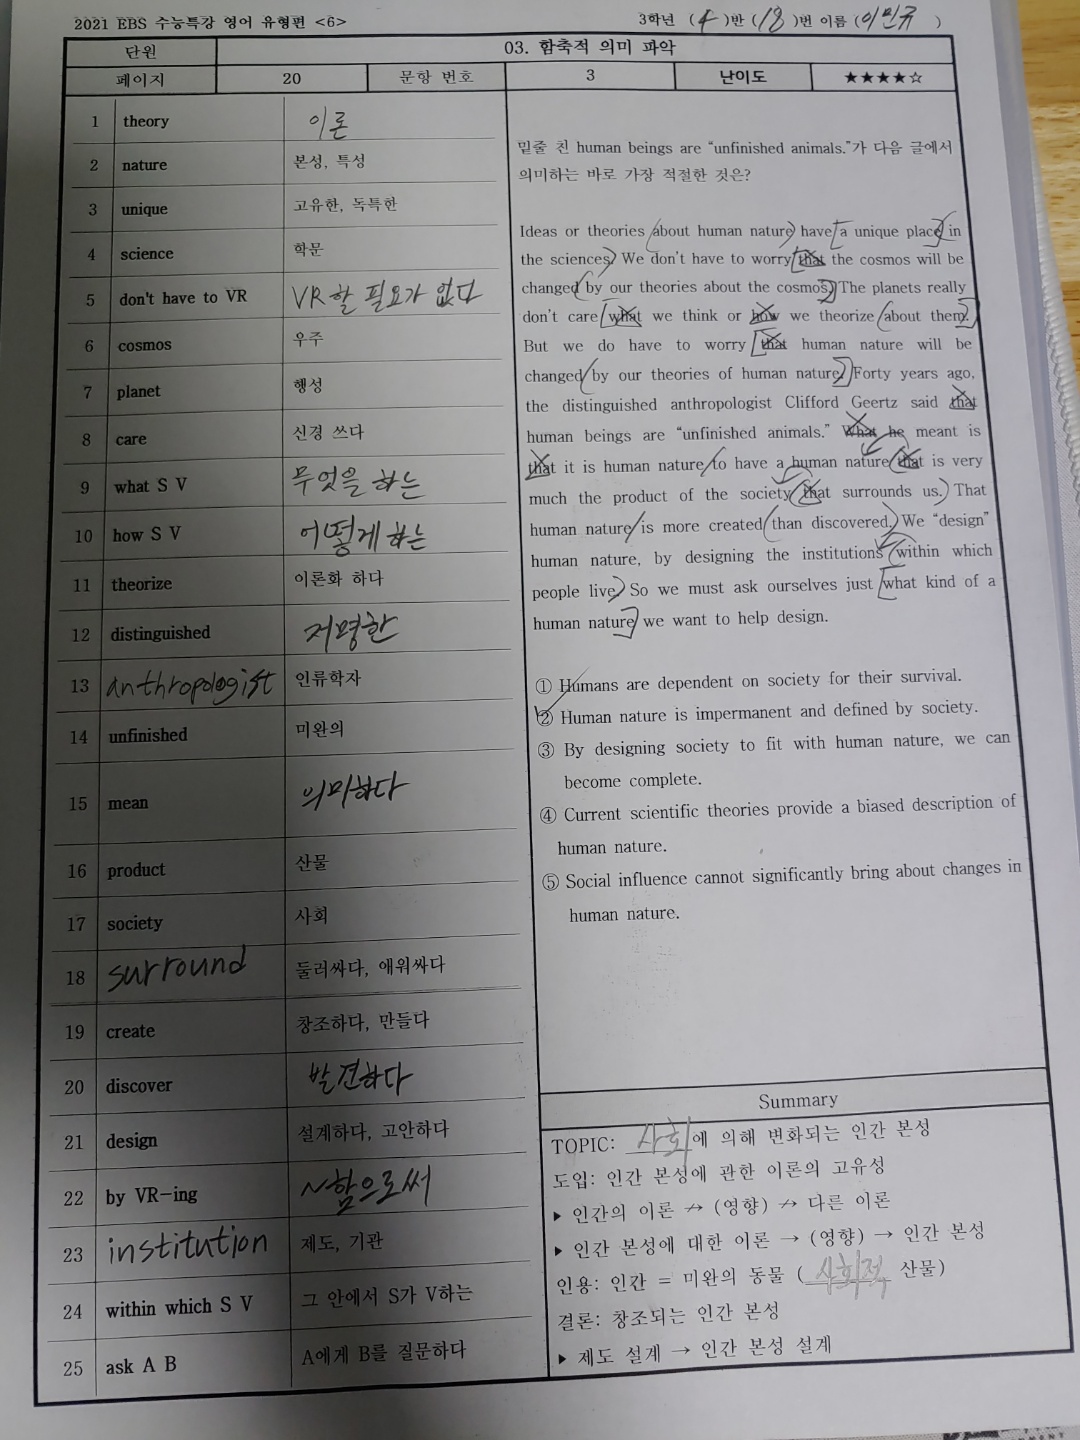 2021 EBS 수능특강 영어 유형편 <6>
3학년 (4)반 (18)번 이름 (이민규)
단원 03. 함축적 의미 파악
페이지 20 문항 번호 3 난이도 ★★★★☆
1 theory 이론
2 nature 본성, 특성
3 unique 고유한, 독특한
4 science 학문
5 don't have to VR VR할 필요가 없다
6 cosmos 우주
7 planet 행성
8 care 신경 쓰다
9 what S V 무엇을 하는
10 how S V 어떻게 하는
11 theorize 이론화 하다
12 distinguished 저명한
13 anthropologist 인류학자
14 unfinished 미완의
15 mean 의미하다
16 product 산물
17 society 사회
18 surround 둘러싸다, 애워싸다
19 create 창조하다, 만들다
20 discover 발견하다
21 design 설계하다, 고안하다
22 by VR-ing ~함으로써
23 institution 제도, 기관
24 within which S V 그 안에서 S가 V하는
25 ask A B A에게 B를 질문하다
밑줄 친 human beings are “unfinished animals.”가 다음 글에서
의미하는 바로 가장 적절한 것은?
Ideas or theories about human nature have a unique place in
the sciences. We don't have to worry that the cosmos will be
changed by our theories about the cosmos. The planets really
don't care what we think or how we theorize about them.
But we do have to worry that human nature will be
changed by our theories of human nature. Forty years ago,
the distinguished anthropologist Clifford Geertz said that
human beings are “unfinished animals.” What he meant is
that it is human nature to have a human nature that is very
much the product of the society that surrounds us. That
human nature is more created than discovered. We “design”
human nature, by designing the institutions within which
people live. So we must ask ourselves just what kind of a
human nature we want to help design.
① Humans are dependent on society for their survival.
② Human nature is impermanent and defined by society.
③ By designing society to fit with human nature, we can
become complete.
④ Current scientific theories provide a biased description of
human nature.
⑤ Social influence cannot significantly bring about changes in
human nature.
Summary
TOPIC: 사회에 의해 변화되는 인간 본성
도입: 인간 본성에 관한 이론의 고유성
▸ 인간의 이론 ↛ (영향) ↛ 다른 이론
▸ 인간 본성에 대한 이론 → (영향) → 인간 본성
인용: 인간 = 미완의 동물 (사회적 산물)
결론: 창조되는 인간 본성
▸ 제도 설계 → 인간 본성 설계